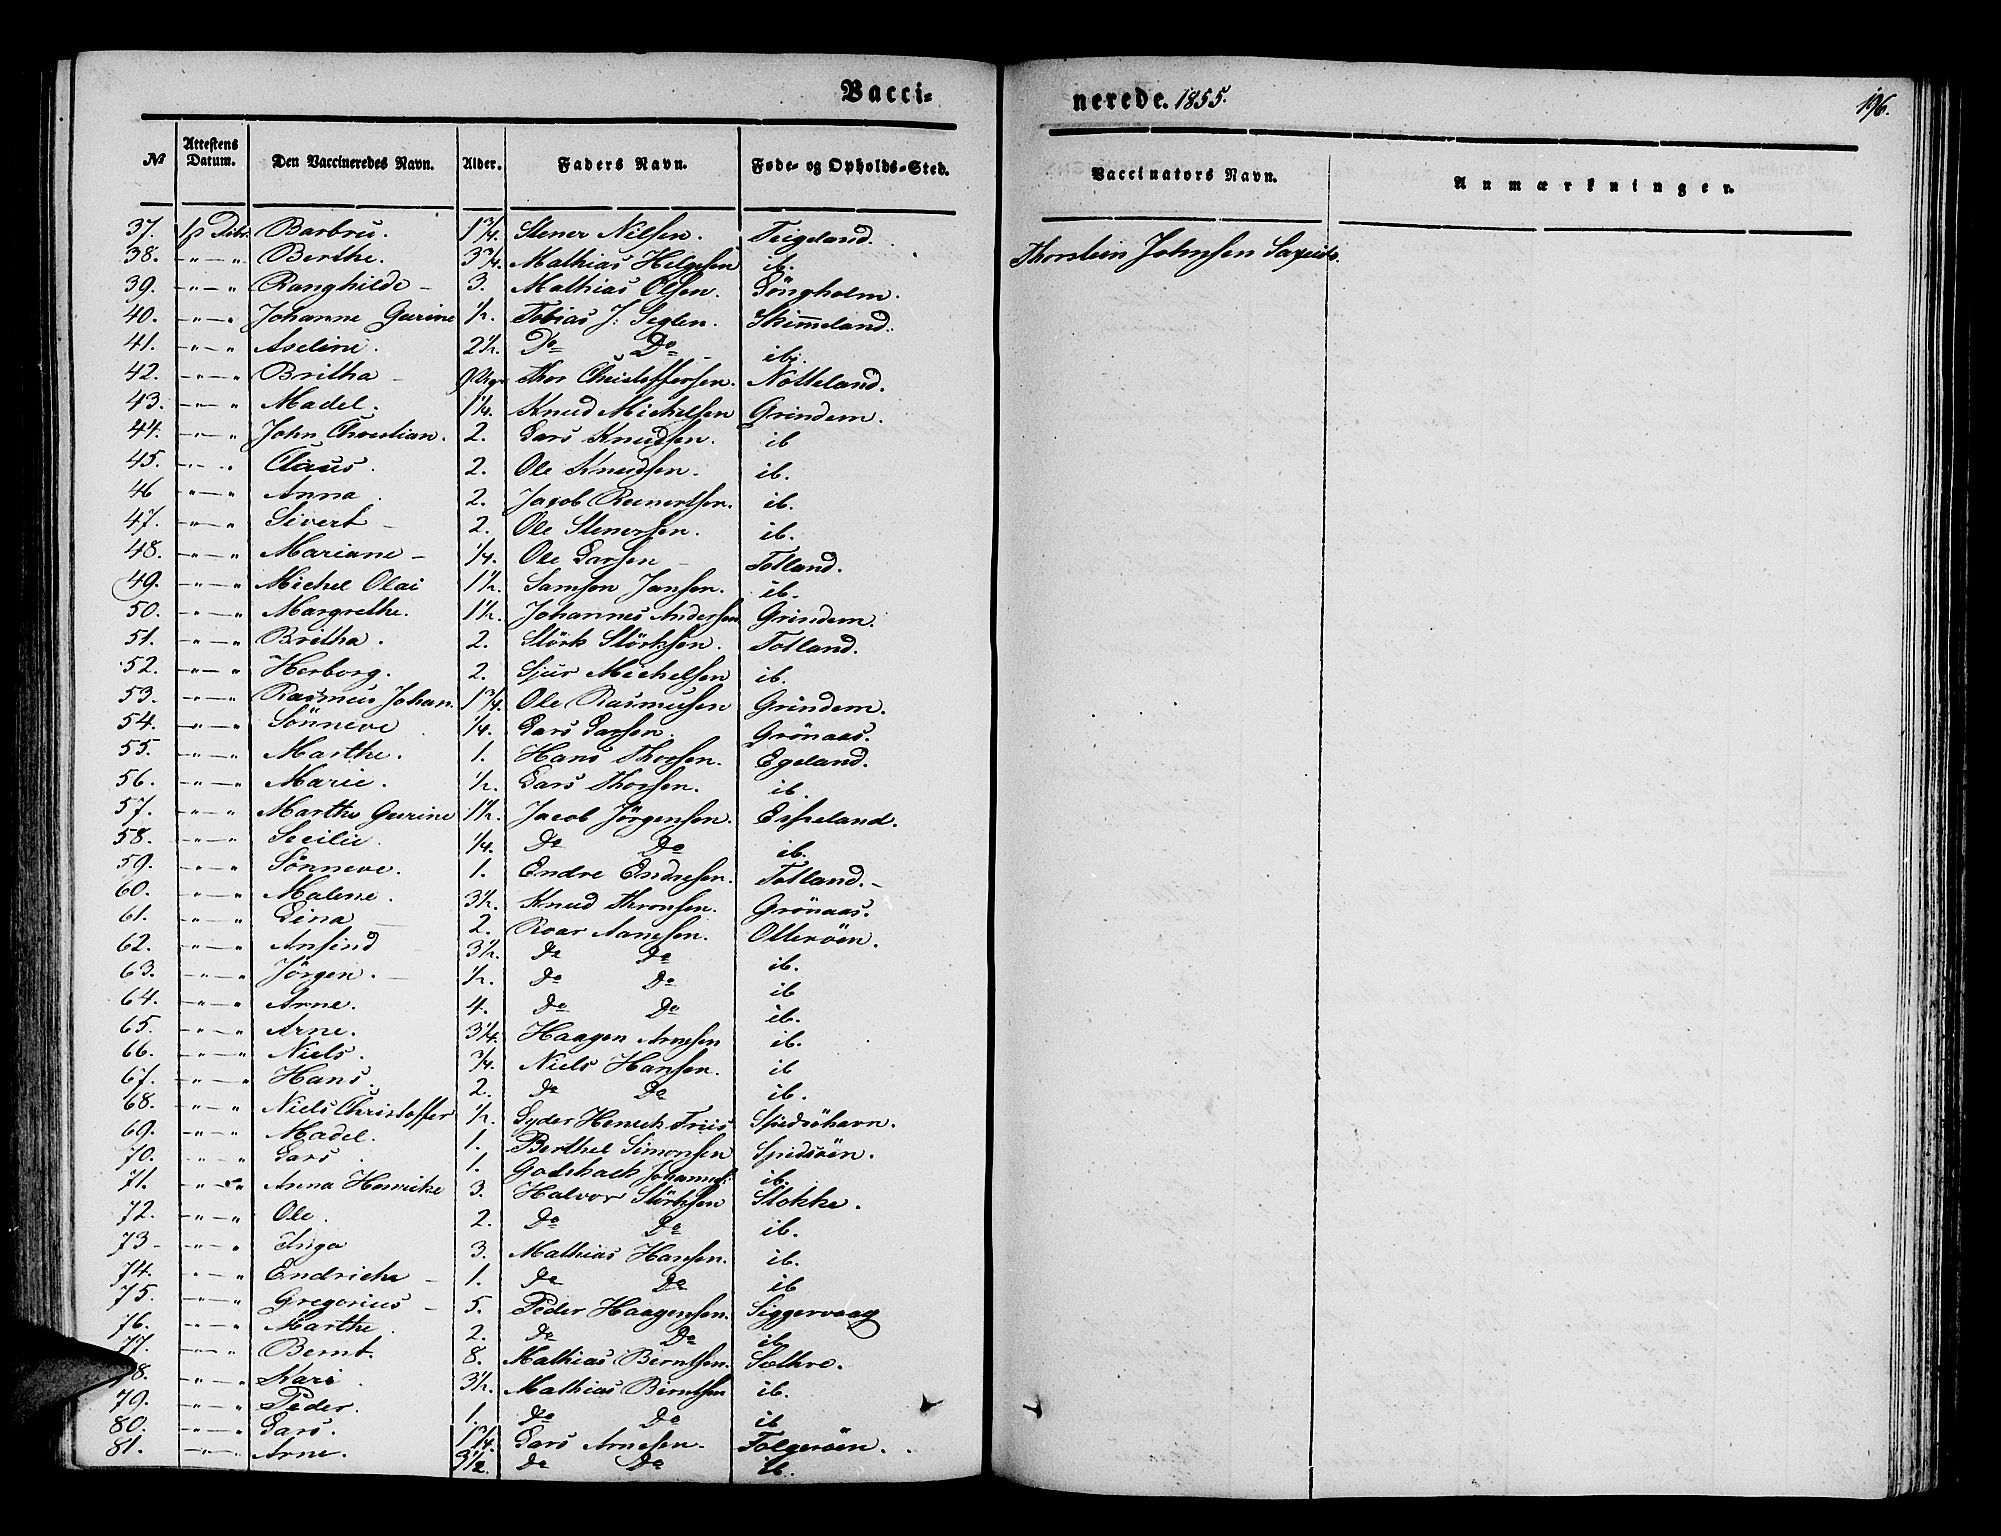 Vacci- nerede. 1855. 196.
№ Attestens Datum. Den Vaccineredes Navn. Alder. Faders Navn. Føde- og Opholds-Sted. Vaccinators Navn. Anmærkninger.
37. Barbru. 1 3/4. Stener Nilsen. Teigeland. Thorstein Johnsen
38. " — " Berthe. 3 3/4. Mathias Helgesen ib.
39. " — " Ranghilde — 3. Mathias Olsen. Söngholm.
40. " — " Johanne Gurine 1/2. Tobias J: Seglen. Skimmeland.
41. " — " Aseline. 2 1/2. Do Do ib.
42. " — " Britha — Thor Christoffersen. Notteland.
43. " — " Madel. 1 1/4. Knud Michelsen Grindem.
44. " — " John Christian. 2. Lars Knudsen. ib
45. " — " Claus. 2. Ole Knudsen. ib.
46 " — " Anna. 2. Jacob Reinertsen. ib.
47. " — " Sivert — 2. Ole Stenersen. ib.
48. " — " Mariane — 1/4. Ole Larsen — Totland.
49. " — " Michel Olai 1 1/2. Samson Jansen. ib.
50. " — " Margrethe. 1 1/2. Johannes Andersen Grindem.
51. " — " Britha. 2. Störk Störksen. Totland.
52. " — " Herborg. 2. Sjur Michelsen ib.
53. " — " Rasmus Johan. 1 3/4. Ole Rasmusen Grindem.
54. " — " Sönneve 1/4. Lars Larsen. Grönaas.
55. " — " Marthe. 1. Hans Thorsen. Egeland.
56. " — " Marie. 1/2. Lars Thorsen. ib.
57. " — " Marthe Gurine 1 1/2. Jacob Jörgensen. Espeland.
58. " — " Secilie 1/4. Do Do ib.
59. " — " Sönneve. 1. Endre Endresen. Totland. —
60. " — " Malene. 3 1/2. Knud Thronsen. Grönaas.
61. " — " Lina — 2. Roar Aanesen. Otteröen.
62. " — " Ansind 3 1/2. Do Do ib.
63. " — " Jörgen. — 1/2. Do Do ib
64. " — " Arne. 4. Do Do ib.
65. " — " Arne. 3 1/4. Haagen Arnesen ib.
66. " — " Niels. 3/4. Niels Hansen. ib
67. " — " Hans. 2. Do Do ib.
68. " — " Niels Christoffer 1/2. Lyder Henrich Friis Spidsöhavn.
69. " — " Madel. 1. Berthel Simonsen Spidsöen.
70. " — " Lars. 1. Johannes: ib.
71. " — " Anna Henricke 3. Halvor Störksen Stokke.
72. " — " Ole. 2. Do Do ib.
73 — " — " Inga 3. Mathias Hansen. ib.
74. " — " Endricke — 1. Do Do ib
75. " — " Gregorius — 5. Peder Haagensen. Siggervaag
76. " — " Marthe. 2. Do Do ib.
77. " — " Bernt. 8. Mathias Berntsen. Sæthre.
78. " — " Kari. 3 1/2. Mathias Berntsen ib.
79. " — " Peder. 1. Do Do ib
80. " — " Lars. 1 3/4. Lars Arnesen. Folgeröen.
81. " — " Arne. 3 1/2. Do Do ib.